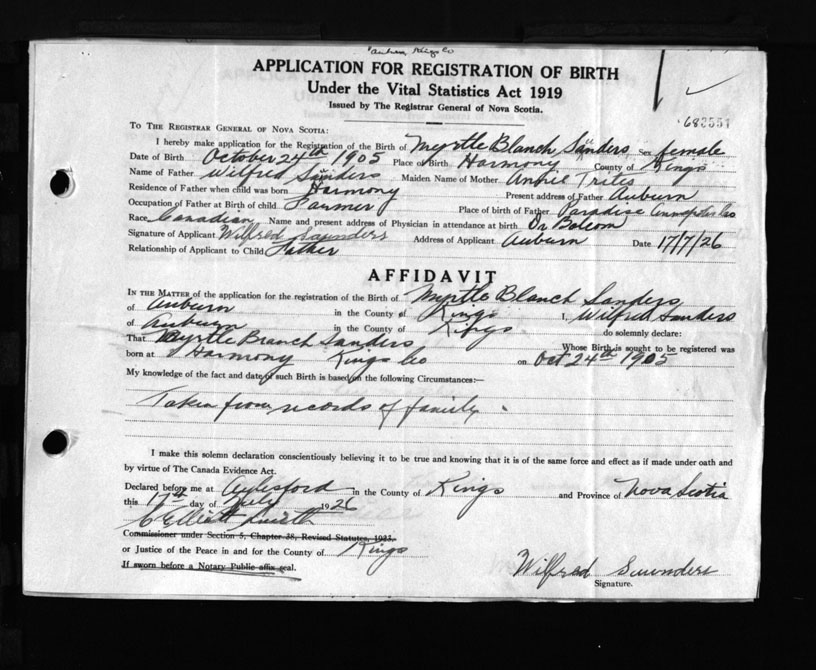 Auburn, Kings Co
APPLICATION FOR REGISTRATION OF BIRTH
Under the Vital Statistics Act 1919
Issued by The Registrar General of Nova Scotia.
TO THE REGISTRAR GENERAL OF NOVA SCOTIA:
I hereby make application for the Registration of the Birth of Myrtle Blanch Sanders Sex female
Date of Birth October 24th 1905 Place of Birth Harmony County of Kings
Name of Father Wilfred Sanders Maiden Name of Mother Annie Trites
Residence of Father when child was born Harmony Present address of Father Auburn
Occupation of Father at Birth of child Farmer Place of birth of Father Paradise Annapolis Co
Race Canadian Name and present address of Physician in attendance at birth Dr Balcom
Signature of Applicant Wilfred Saunders Address of Applicant Auburn Date 17/7/26
Relationship of Applicant to Child Father
AFFIDAVIT
IN THE MATTER of the application for the registration of the Birth of Myrtle Blanch Sanders
of Auburn in the County of Kings I, Wilfred Sanders
of Auburn in the County of Kings do solemnly declare:
That Myrtle Branch Sanders Whose Birth is sought to be registered was
born at Harmony Kings Co on Oct 24th 1905
My knowledge of the fact and date of such Birth is based on the following Circumstances:—
Taken from records of family.
I make this solemn declaration conscientiously believing it to be true and knowing that it is of the same force and effect as if made under oath and
by virtue of The Canada Evidence Act.
Declared before me at Aylesford in the County of Kings and Province of Nova Scotia
this 17th day of July 1926
C Elliott Smith
Commissioner under Section 5, Chapter 38, Revised Statutes, 1923.
or Justice of the Peace in and for the County of Kings
If sworn before a Notary Public affix seal.
Wilfred Saunders
Signature.